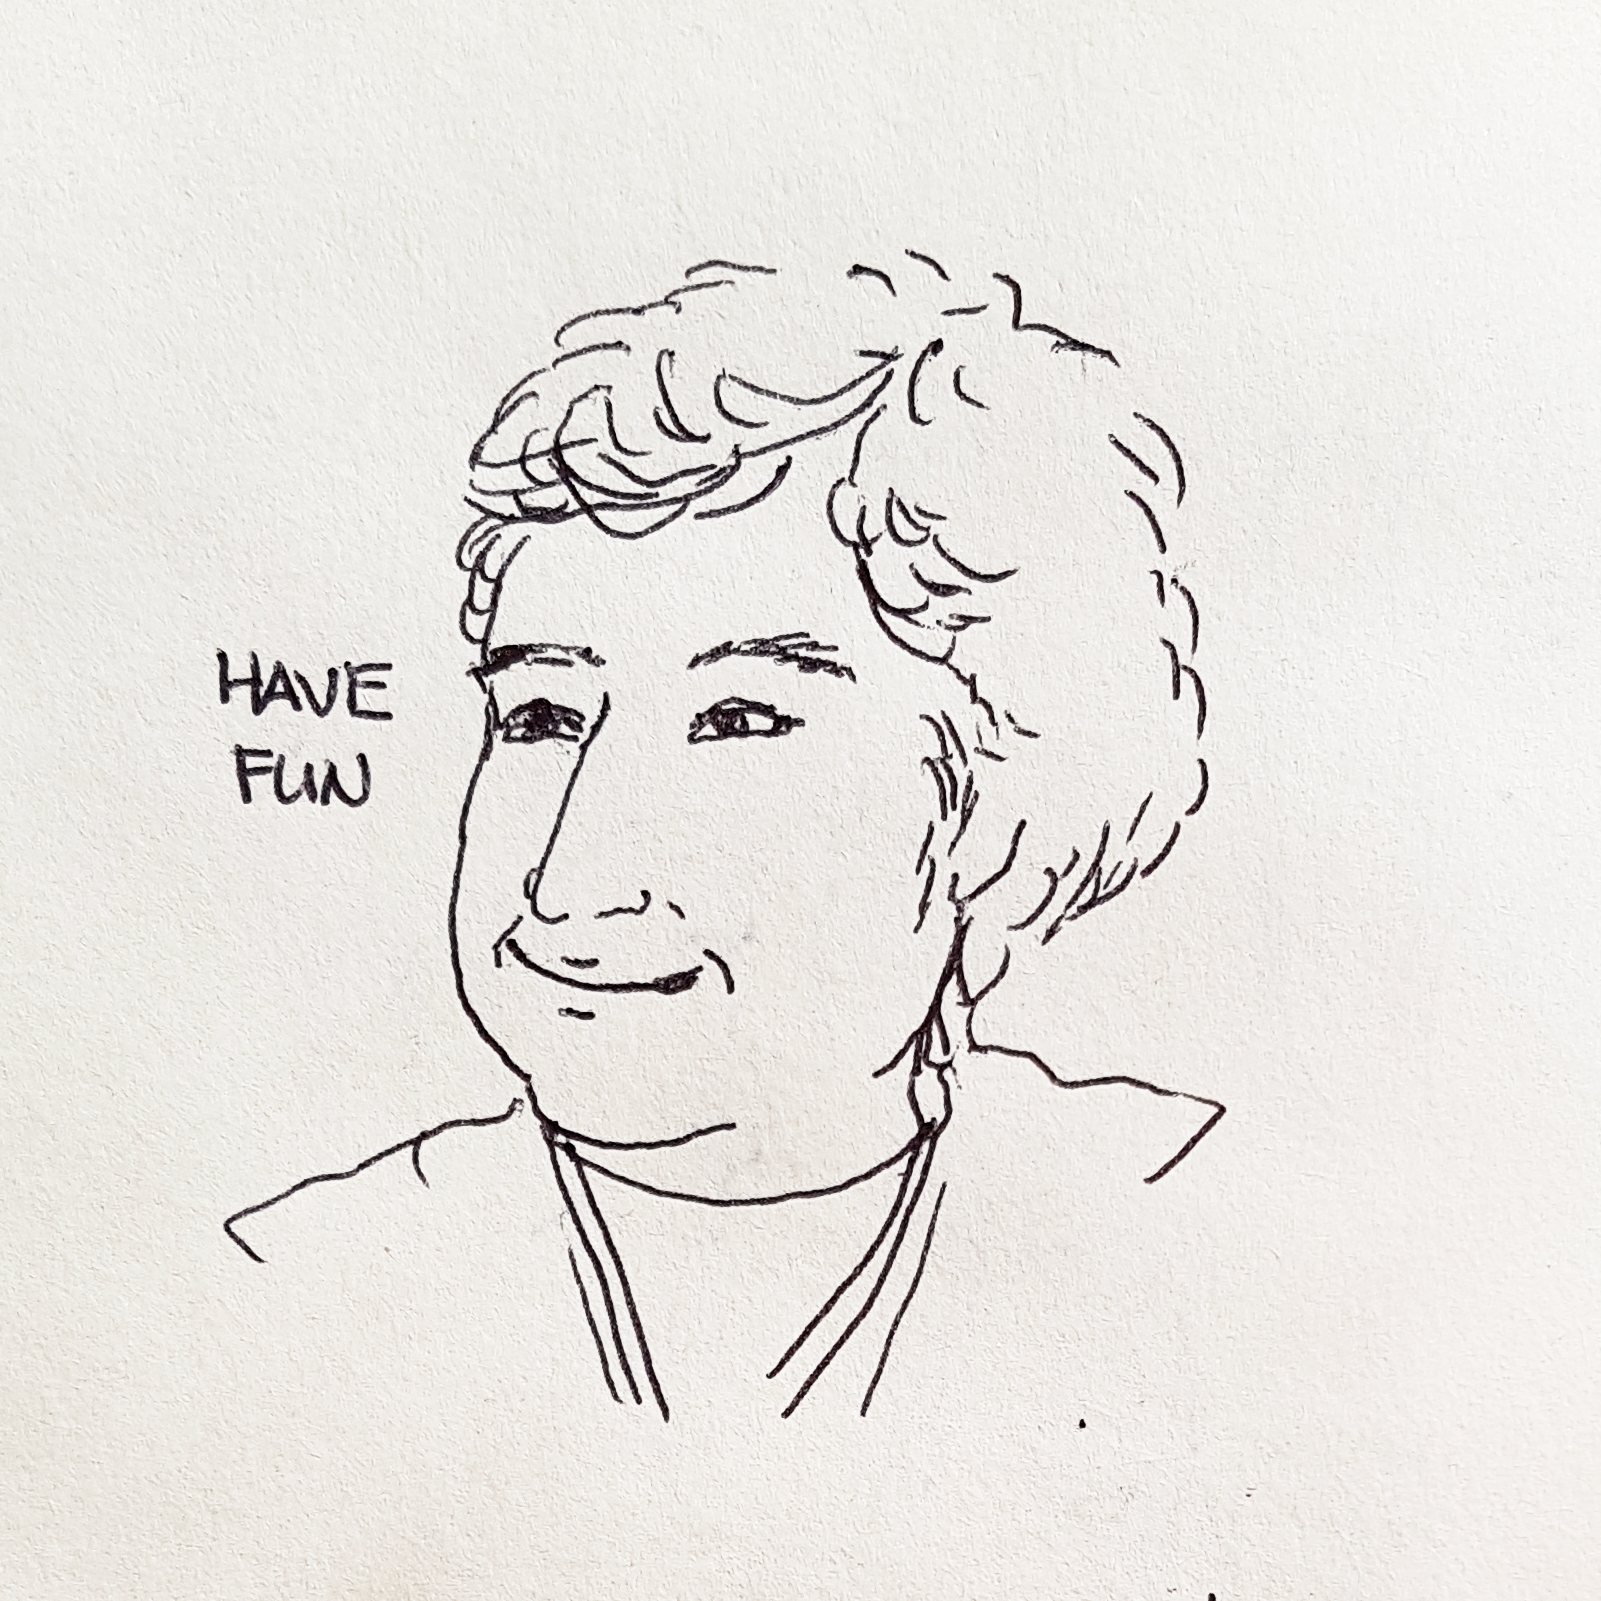 HAVE
FUN